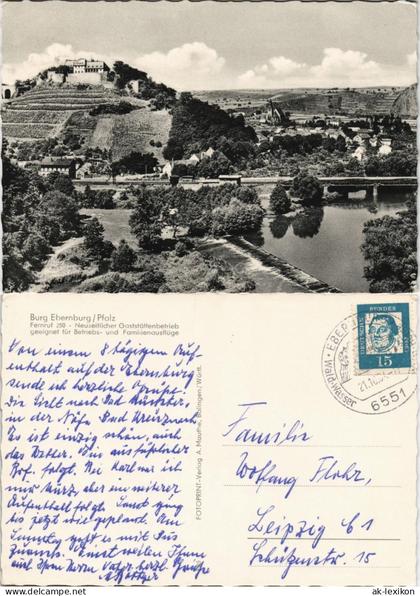 Burg Ebernburg / Pfalz
Fernruf 250 - Neuzeitlicher Gaststättenbetrieb
geeignet für Betriebs- und Familienausflüge
Von einem 8 tägigen Auf-
enthalt auf der Ebernburg
sende ich herzliche Grüße.
Die Sicht nach Bad Münster,
in der Nähe Bad Kreuznach.
Es ist einzig schön, auch
das Wetter. Aus ausführlicher
folgt. Bei Karl war ich
nur kurz, aber ein weiterer
Aufenthalt folgt. Sonst ging
bis jetzt wie geplant. Am
Samstag geht es mit Bus
zuwärts. Einst weilen Ihnen
auch Ihrem Herrn Vater herzl. Grüße
FOTOPRINT-Verlag A. Mauthe, Balingen/Württ.
DEUTSCHE BUNDESPOST
15
21.10.
6551
Familie
Wolfgang Flohr,
Leipzig C 1
Schützenstr. 15
ak-lexikon.de
© www.ak-lexikon.com